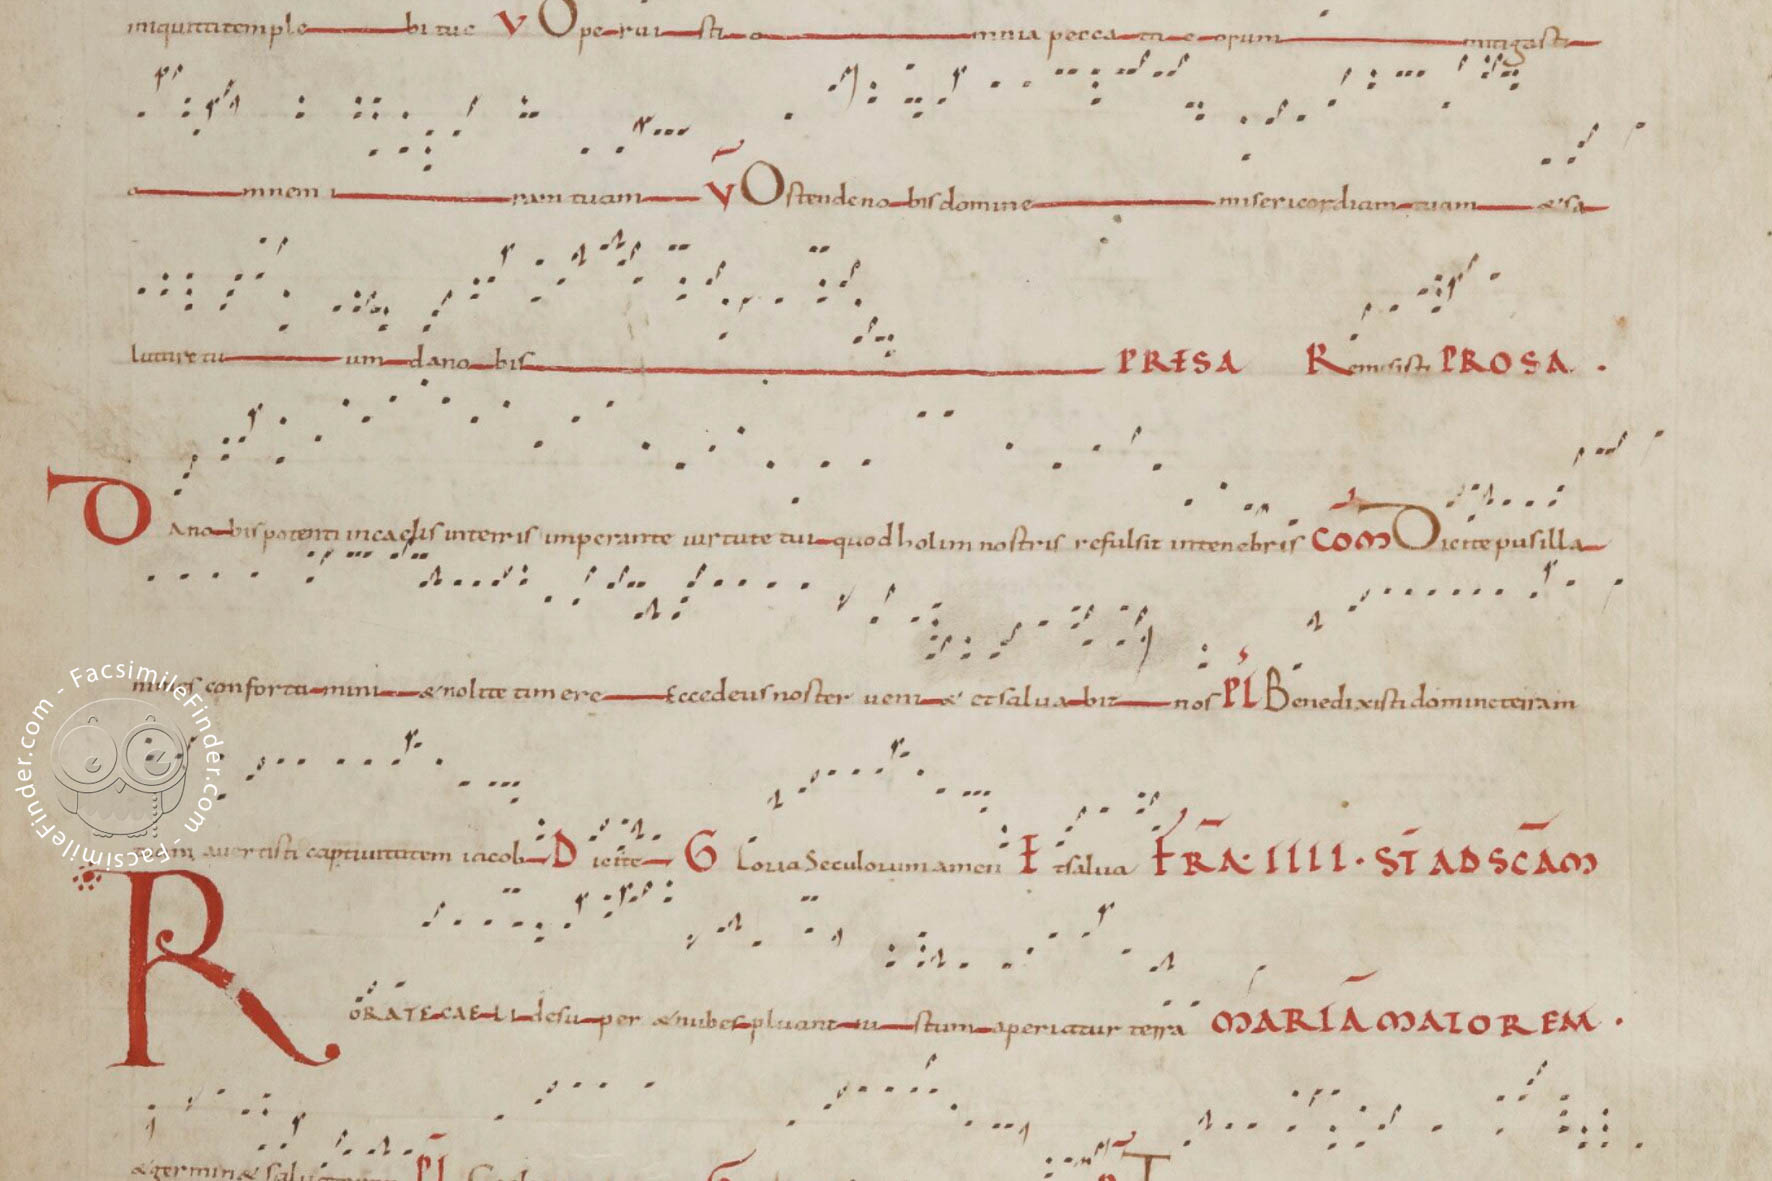 iniquitatem ple bi tuę V Ope rui sti o mnia pecca ta e orum mitigasti
o mnem i ram tuam V Ostende no bis domine misericordiam tuam & sa
lutare tu um da no bis PRESA Remisisti PROSA .
DA no bis potenti in caelis in terris imperante virtute tui quod holim nostris refulsit in tenebris COM Dicite pusilla
nimes conforta mini & nolite timere Ecce deus noster veni & et salva bit nos PL Benedixisti domine terram
tuam avertisti captivitatem iacob D icite G loria Seculorum amen E tsalva FRA· IIII · ST AD SCAM
RORATE CAELI desu per & nubes pluant iu stum aperiatur terra MARIA MAIOREM ·
& germin& salva PL
FacsimileFinder.com - FacsimileFinder.com -